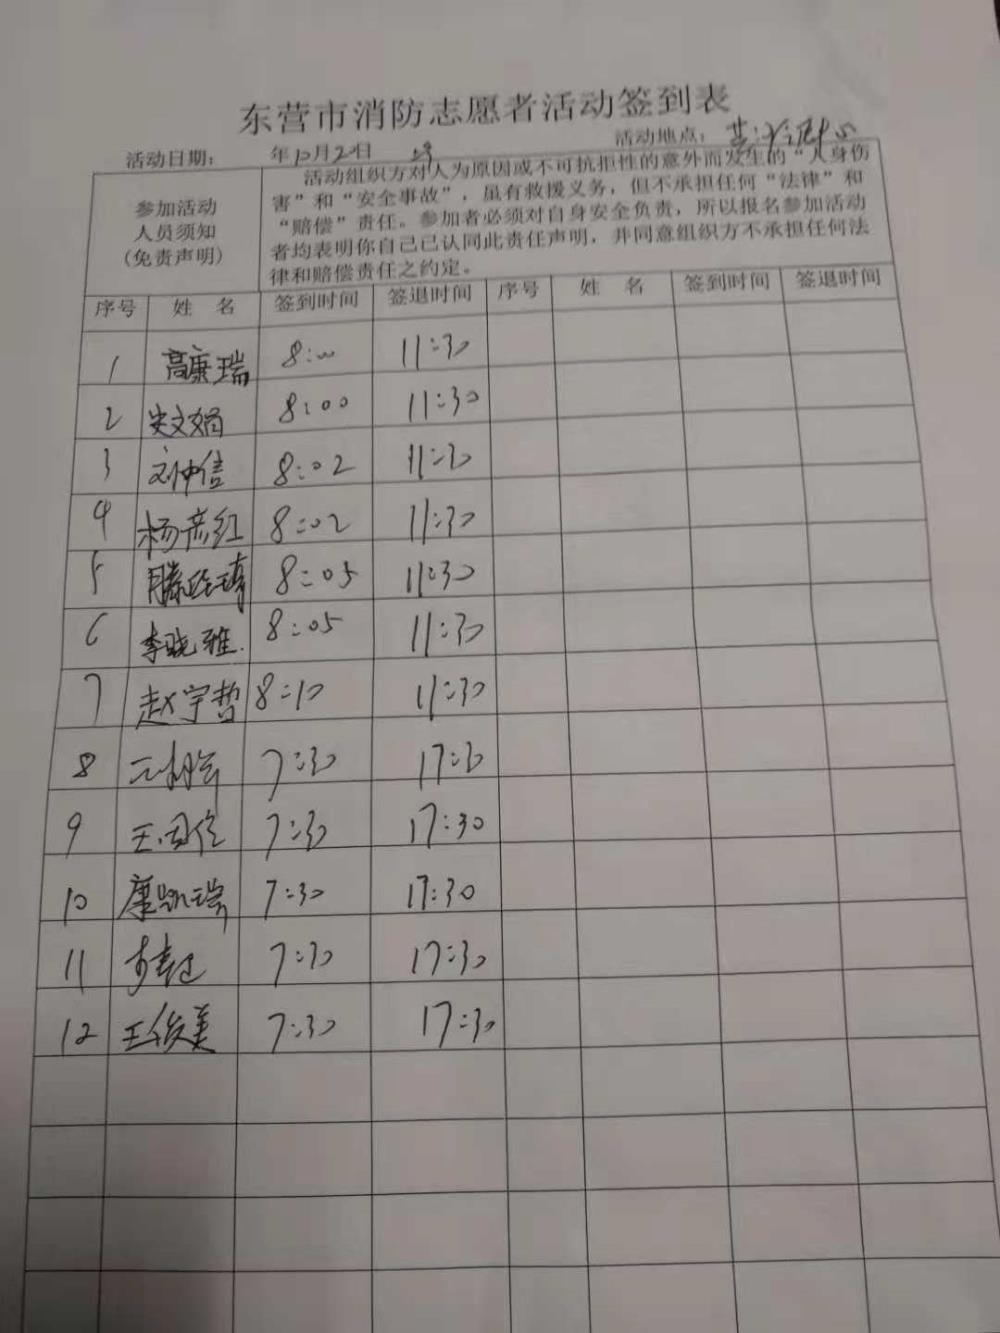 东营市消防志愿者活动签到表
活动日期: 年10月2日 活动地点:
参加活动
人员须知
(免责声明)
活动组织方对人为原因或不可抗拒性的意外而发生的“人身伤
害”和“安全事故”，虽有救援义务，但不承担任何“法律”和
“赔偿”责任。参加者必须对自身安全负责，所以报名参加活动
者均表明你自己已认同此责任声明，并同意组织方不承担任何法
律和赔偿责任之约定。
序号 姓 名 签到时间 签退时间 序号 姓 名 签到时间 签退时间
1 高康瑞 8:00 11:30
2 史文娟 8:00 11:30
3 刘中信 8:02 11:30
4 杨彦红 8:02 11:30
5 滕 8:05 11:30
6 李晓雅 8:05 11:30
7 赵宇哲 8:10 11:30
8 7:30 17:30
9 王国 7:30 17:30
10 康凯瑞 7:30 17:30
11 7:30 17:30
12 王俊美 7:30 17:30